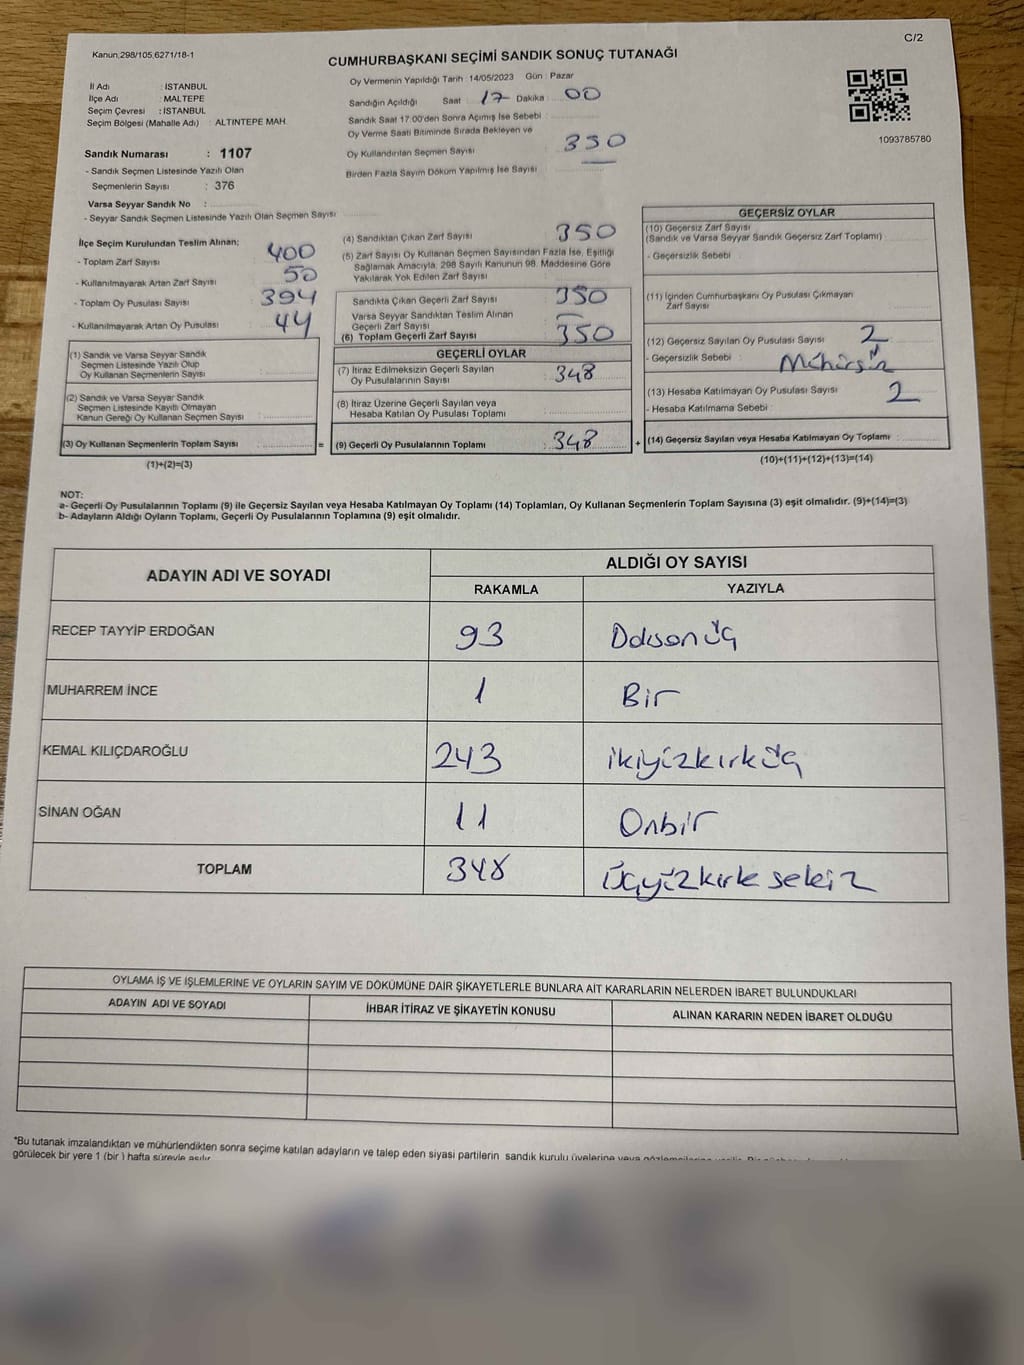 Kanun:298/105,6271/18-1
C/2
CUMHURBAŞKANI SEÇİMİ SANDIK SONUÇ TUTANAĞI
Oy Vermenin Yapıldığı Tarih : 14/05/2023 Gün : Pazar
İl Adı : İSTANBUL
İlçe Adı : MALTEPE
Seçim Çevresi : İSTANBUL
Seçim Bölgesi (Mahalle Adı) : ALTINTEPE MAH.
Sandığın Açıldığı Saat : 17 Dakika : 00
Sandık Saat 17.00'den Sonra Açımış İse Sebebi :
Oy Verme Saati Bitiminde Sırada Bekleyen ve
Oy Kullandırılan Seçmen Sayısı : 350
Birden Fazla Sayım Döküm Yapılmış İse Sayısı :
1093785780
Sandık Numarası : 1107
- Sandık Seçmen Listesinde Yazılı Olan
Seçmenlerin Sayısı : 376
Varsa Seyyar Sandık No :
- Seyyar Sandık Seçmen Listesinde Yazılı Olan Seçmen Sayısı
İlçe Seçim Kurulundan Teslim Alınan;
- Toplam Zarf Sayısı : 400
- Kullanılmayarak Artan Zarf Sayısı : 50
- Toplam Oy Pusulası Sayısı : 394
- Kullanılmayarak Artan Oy Pusulası : 44
(1) Sandık ve Varsa Seyyar Sandık
Seçmen Listesinde Yazılı Olup
Oy Kullanan Seçmenlerin Sayısı :
(2) Sandık ve Varsa Seyyar Sandık
Seçmen Listesinde Kayıtlı Olmayan
Kanun Gereği Oy Kullanan Seçmen Sayısı :
(3) Oy Kullanan Seçmenlerin Toplam Sayısı : =
(1)+(2)=(3)
(4) Sandıktan Çıkan Zarf Sayısı : 350
(5) Zarf Sayısı Oy Kullanan Seçmen Sayısından Fazla İse, Eşitliği
Sağlamak Amacıyla, 298 Sayılı Kanunun 98. Maddesine Göre
Yakılarak Yok Edilen Zarf Sayısı :
Sandıkta Çıkan Geçerli Zarf Sayısı : 350
Varsa Seyyar Sandıktan Teslim Alınan
Geçerli Zarf Sayısı : —
(6) Toplam Geçerli Zarf Sayısı : 350
GEÇERLİ OYLAR
(7) İtiraz Edilmeksizin Geçerli Sayılan
Oy Pusulalarının Sayısı : 348
(8) İtiraz Üzerine Geçerli Sayılan veya
Hesaba Katılan Oy Pusulası Toplamı :
(9) Geçerli Oy Pusulalarının Toplamı : 348 +
GEÇERSİZ OYLAR
(10) Geçersiz Zarf Sayısı
(Sandık ve Varsa Seyyar Sandık Geçersiz Zarf Toplamı) :
- Geçersizlik Sebebi :
(11) İçinden Cumhurbaşkanı Oy Pusulası Çıkmayan
Zarf Sayısı :
(12) Geçersiz Sayılan Oy Pusulası Sayısı : 2
- Geçersizlik Sebebi :
(13) Hesaba Katılmayan Oy Pusulası Sayısı : 2
- Hesaba Katılmama Sebebi :
(14) Geçersiz Sayılan veya Hesaba Katılmayan Oy Toplamı :
(10)+(11)+(12)+(13)=(14)
NOT:
a- Geçerli Oy Pusulalarının Toplamı (9) ile Geçersiz Sayılan veya Hesaba Katılmayan Oy Toplamı (14) Toplamları, Oy Kullanan Seçmenlerin Toplam Sayısına (3) eşit olmalıdır. (9)+(14)=(3)
b- Adayların Aldığı Oyların Toplamı, Geçerli Oy Pusulalarının Toplamına (9) eşit olmalıdır.
ADAYIN ADI VE SOYADI
ALDIĞI OY SAYISI
RAKAMLA YAZIYLA
RECEP TAYYİP ERDOĞAN 93
MUHARREM İNCE 1 Bir
KEMAL KILIÇDAROĞLU 243 ikiyüzkırküç
SİNAN OĞAN 11 Onbir
TOPLAM 348 Üçyüzkırk sekiz
OYLAMA İŞ VE İŞLEMLERİNE VE OYLARIN SAYIM VE DÖKÜMÜNE DAİR ŞİKAYETLERLE BUNLARA AİT KARARLARIN NELERDEN İBARET BULUNDUKLARI
ADAYIN ADI VE SOYADI İHBAR İTİRAZ VE ŞİKAYETİN KONUSU ALINAN KARARIN NEDEN İBARET OLDUĞU
*Bu tutanak imzalandıktan ve mühürlendikten sonra seçime katılan adayların ve talep eden siyasi partilerin sandık kurulu üyelerine veya
görülecek bir yere 1 (bir) hafta süreyle asılır.